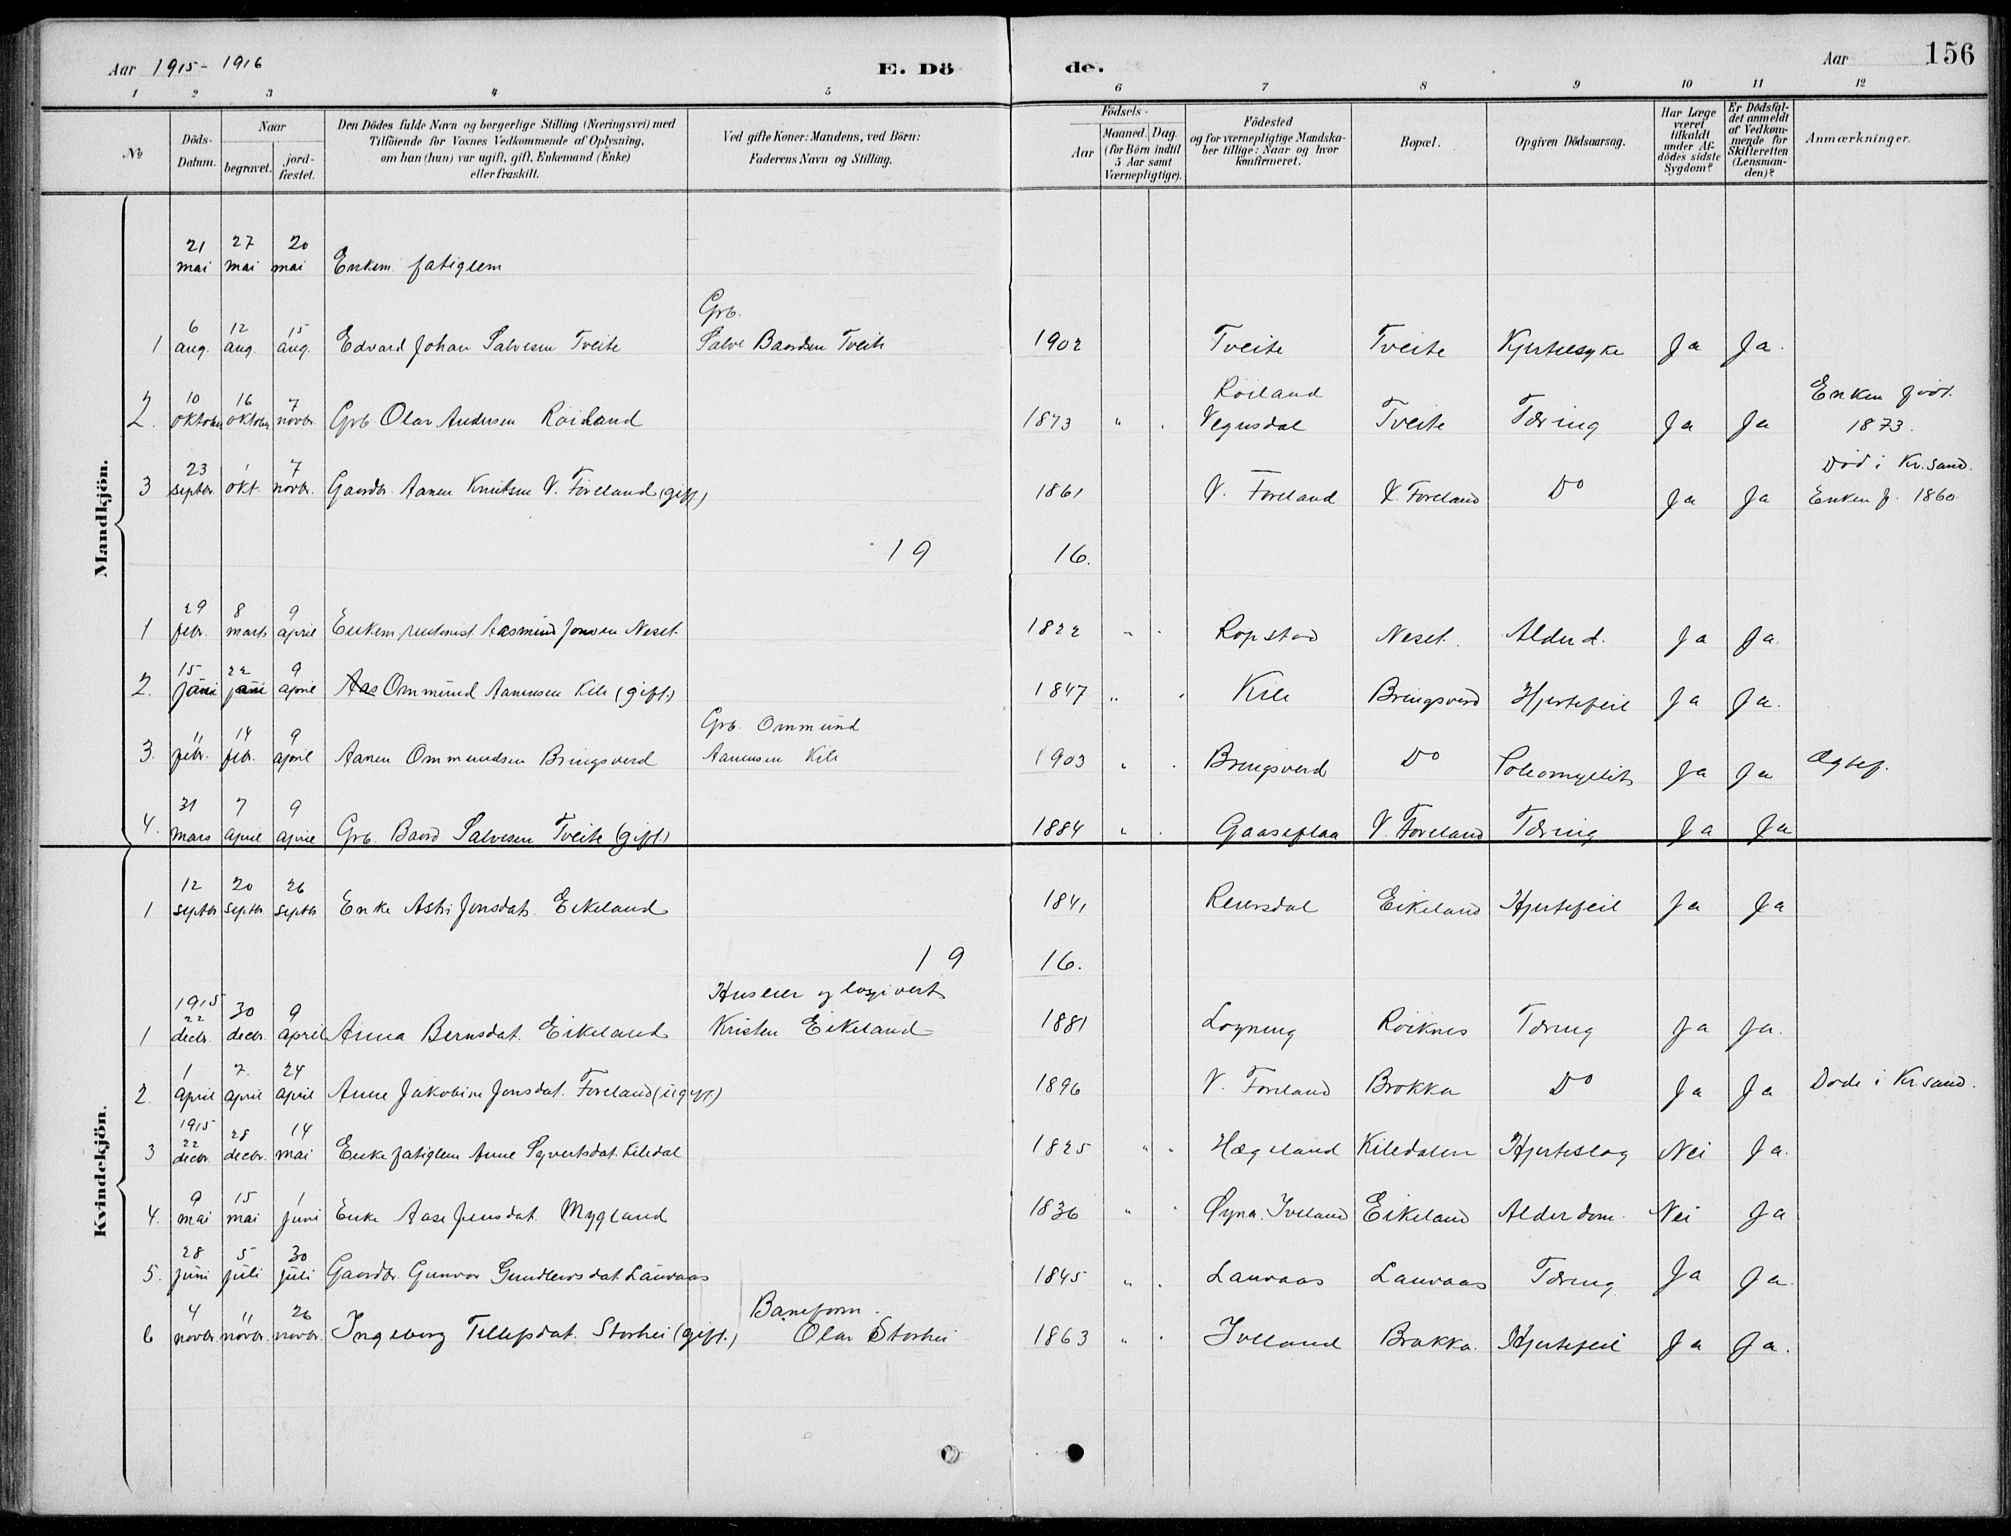 Aar 1915 - 1916 E. Dö de. Aar 156
1 2 3 4 5 6 7 8 9 10 11 12
№ Döds-Datum. Naar begravet. jordfæstet. Den Dödes fulde Navn og borgerlige Stilling (Næringsvei) med Tilföiende for Voxnes Vedkommende af Oplysning, om han (hun) var ugift, gift, Enkemand (Enke) eller fraskilt. Ved gifte Koner: Mandens, ved Börn: Faderens Navn og Stilling. Födsels- Aar Maaned. Dag. (for Börn indtil 5 Aar samt Værnepligtige). Födested og for værnepligtige Mandskaber tillige: Naar og hvor konfirmeret. Bopæl. Opgiven Dödsaarsag. Har Læge været tilkaldt under Afdödes sidste Sygdom? Er Dödsfaldet anmeldt af Vedkommende for Skifteretten (Lensmanden)? Anmærkninger.
Mandkjön.
21 27 20
mai mai mai Enkem. fatiglem
6 12 15 Grb.
1 aug. aug. aug. Edvard Johan Salvesen Tveite Salve Baordsen Tveite 1902 Tveite Tveite Kjertelsyke Ja Ja.
10 16 7 Roiland Enken föd.
2. oktober oktober novbr. Grb. Olav Andersen Roiland 1873 " . Vegusdal Tveite Tæring Ja Ja 1873.
23 1 7 Död i Kr.sand.
3 septbr okt. novbr. Gaardbr. Aanen Knutsen V. Foreland (gift) 1861 V. Foreland V. Foreland Do Ja Ja Enken f. 1860.
19 16.
29 8 9
1 febr. marts april Enkem. Aasmund Jonsen Neset. 1822 " . Ropstad Neset. Alderd. Ja Ja.
15 22 9
2. april Aas Ommund Aanensen Kile (gift.) 1847 " . Kile Bringsverd Hjertefeil Ja Ja.
11 14 9 Grb. Ommund
3. febr. febr. april Aanen Ommundsen Bringsverd Aanensen Kile 1903 " . Bringsverd Do Poleomyelit Ja Ja Ægtef.
31 7 9
4. mars april april Grb. Baord Salvesen Tveite (gift.) 1884 " . Gaaseflaa V. Foreland Tæring Ja Ja
Kvindekjön.
12 20 26
1 septbr septbr septbr Enke Astri Jonsdat. Eikeland 1841 Reiersdal Eikeland Hjertefeil Ja Ja
19 16.
1915
22 30 9 Huseier og losjivert
1 decbr. decbr. april Anna Berntsdat. Eikeland Kristen Eikeland 1881 Logning Röiknes Tæring Ja Ja.
1 7. 24
2. april april april Anne Jakobine Jonsdat. Foreland (ugift) 1896 V. Foreland Brokka Do Ja Ja Döde i Kr.sand.
1915
22 28 14
3 decbr. decbr. mai Enke fatiglem Anne Syvertsdat. Kiledal 1825 " . Hægeland Kiledalen Hjerteslag Nei Ja.
9 15 1
4. mai mai juni Enke Aase Jensdat. Mygland 1836 " . Øyna. Iveland Eikeland Alderdom. Nei Ja
28 5 30
5. juni juli juli Gaardbr. Gunvor Gundleivsdat. Lauvaas 1845 " . Lauvaas Lauvaas Tæring Ja Ja.
4 11 26 Baneform.
6 novbr. novbr. novbr. Ingeborg Tellefsdat. Storhei (gift.) Olav Storhei 1863 " . Iveland Brakka. Hjertefeil Ja Ja.